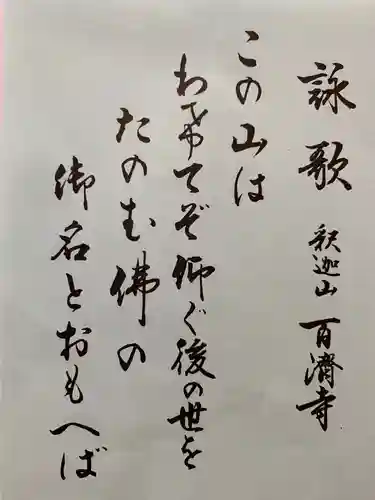 詠歌 釈迦山 百濟寺
この山は
わきてぞ仰ぐ後の世を
たのむ佛の
御名とおもへば